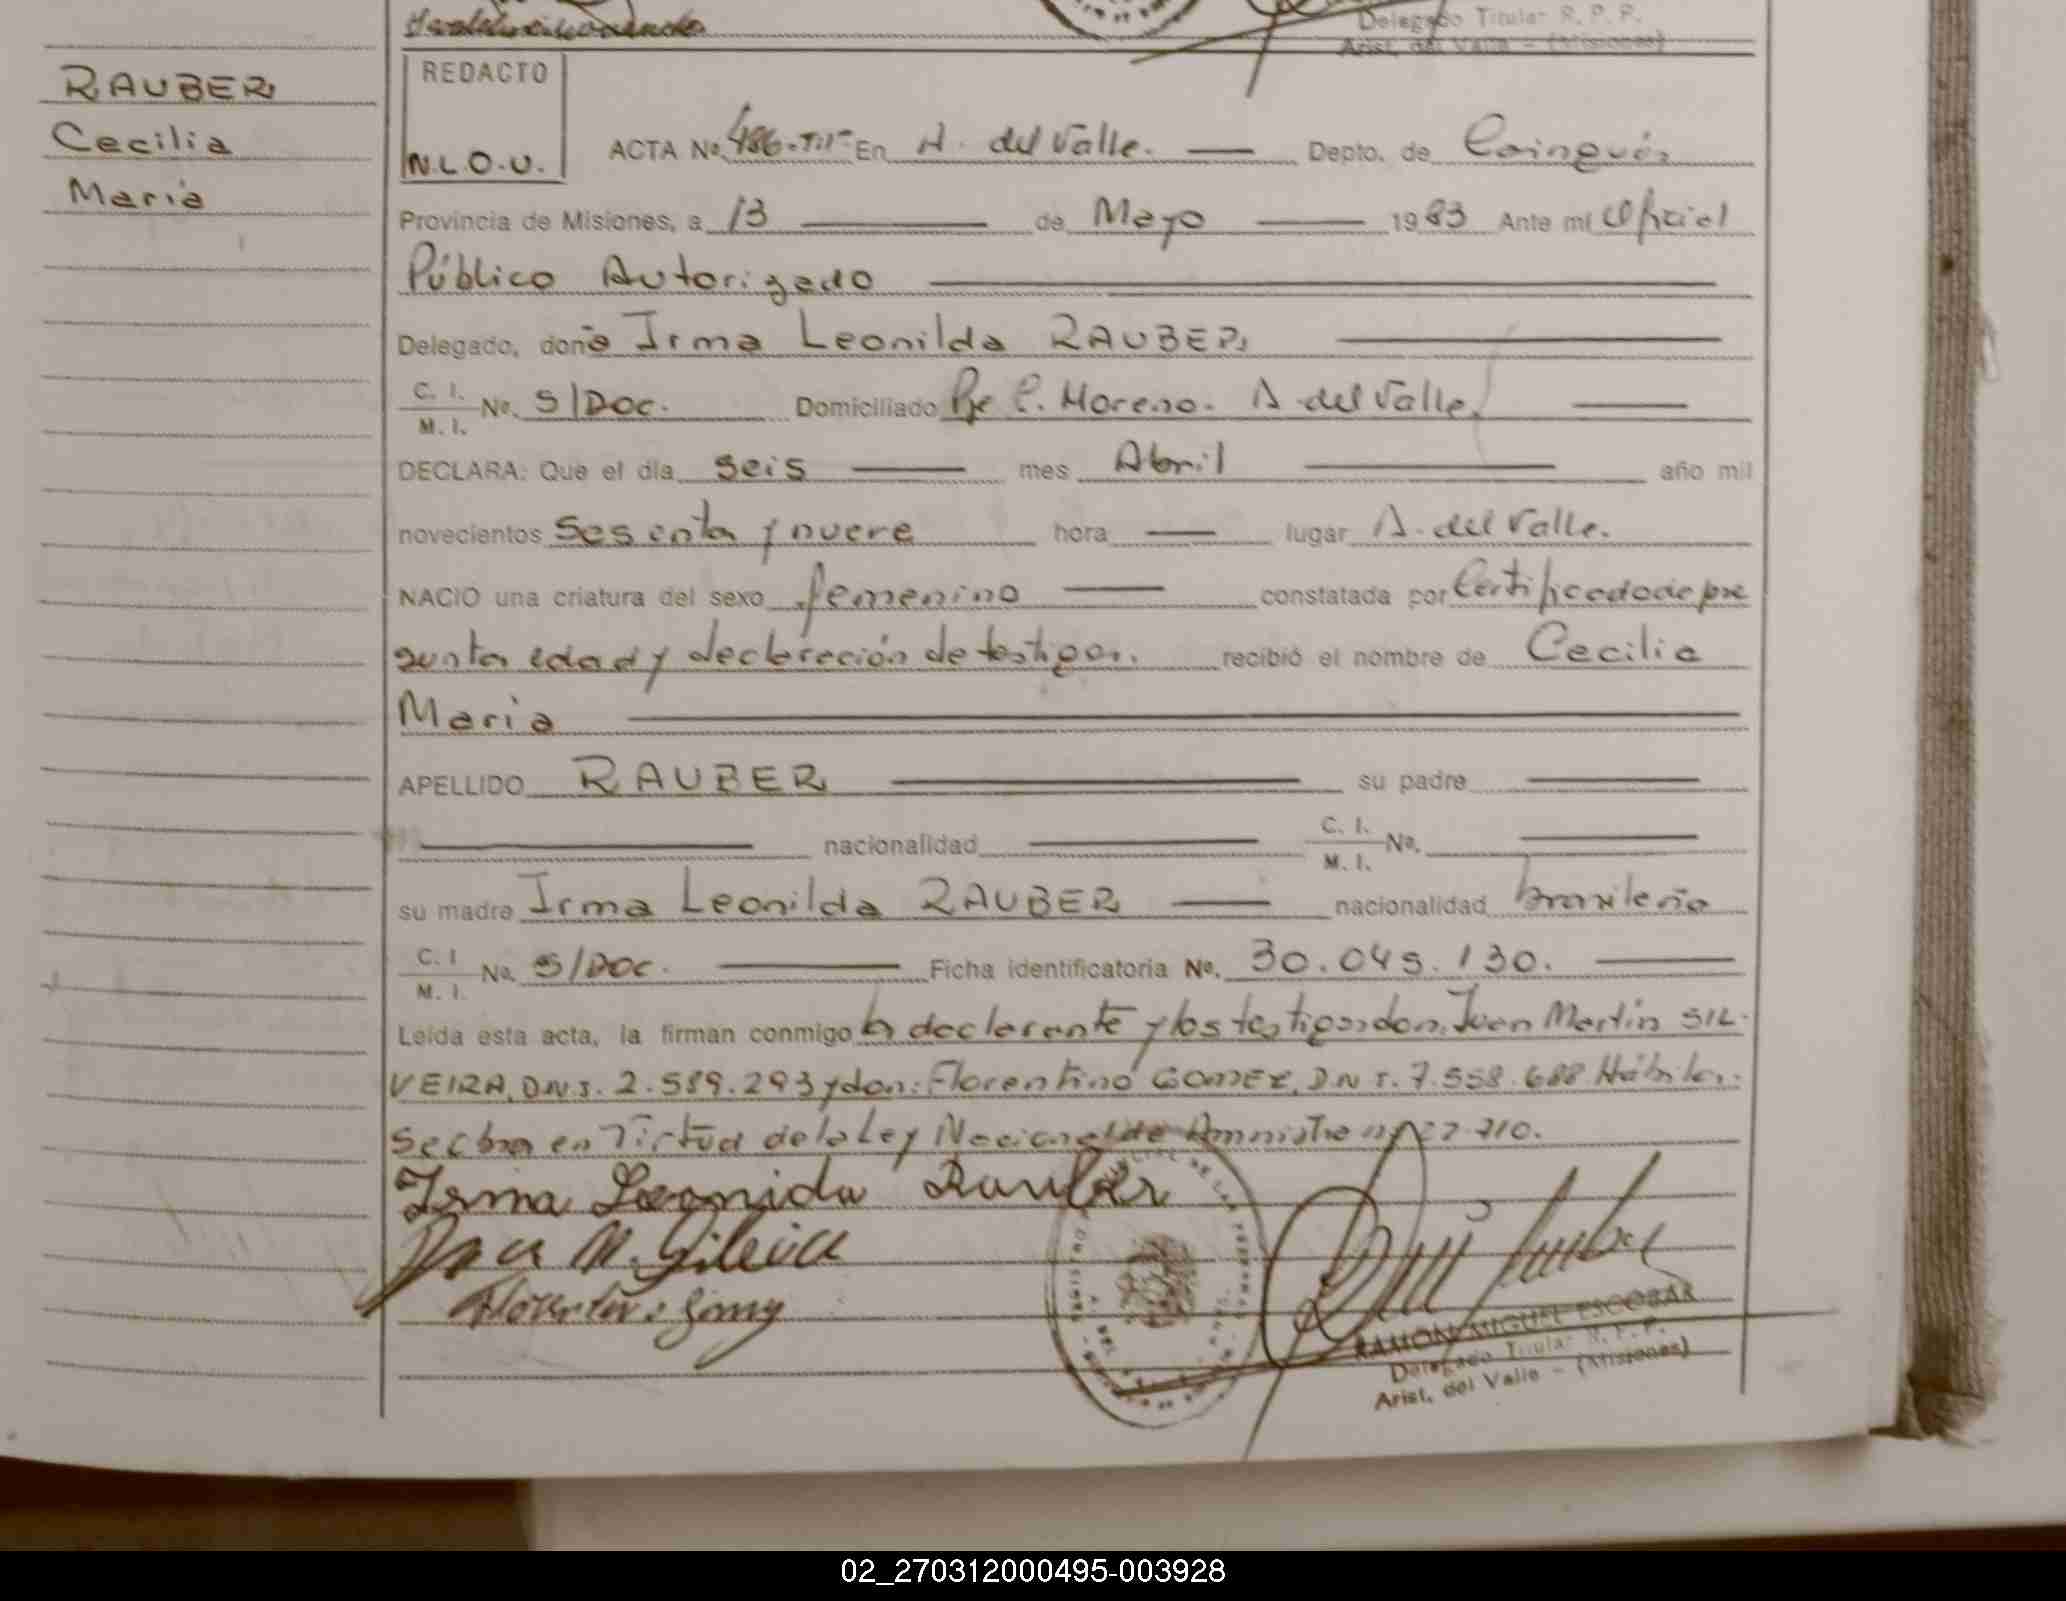 Delegado Titular R. P. P.
Arist. del Valle - (Misiones)
RAUBER
Cecilia
Maria
REDACTO
N.L.O.U.
ACTA No. 486-TII- En A. del Valle. Depto. de Cainguás
Provincia de Misiones, a 13 de Mayo 1983 Ante mí Oficial
Público Autorizado
Delegado, doña Irma Leonilda RAUBER
C. I.
M. I. No. S/DOC. Domiciliado Pje P. Moreno. A del Valle.
DECLARA: Que el día seis mes Abril año mil
novecientos sesenta y nueve hora lugar A. del Valle.
NACIO una criatura del sexo femenino constatada por Certificado de pre
sunta edad y declaración de testigos. recibió el nombre de Cecilia
Maria
APELLIDO RAUBER su padre
nacionalidad C. I.
M. I. No.
su madre Irma Leonilda RAUBER nacionalidad brasileña
C. I
M. I. No. S/DOC. Ficha identificatoria No. 30.045.130.
Leída esta acta, la firman conmigo la declarante y los testigos don. Juan Martín SIL-
VEIRA, D.N.I. 2.589.293 y don: Florentino GOMEZ, D.N.I. 7.558.688 Hábiles.
Se labra en virtud de la Ley Nacional de Amnistía nº 22.710.
Irma Leonida Rauber
Juan M. Silveira
Florentino Gomez
RAMON MIGUEL ESCOBAR
Delegado Titular R. P. P.
Arist. del Valle - (Misiones)
02_270312000495-003928